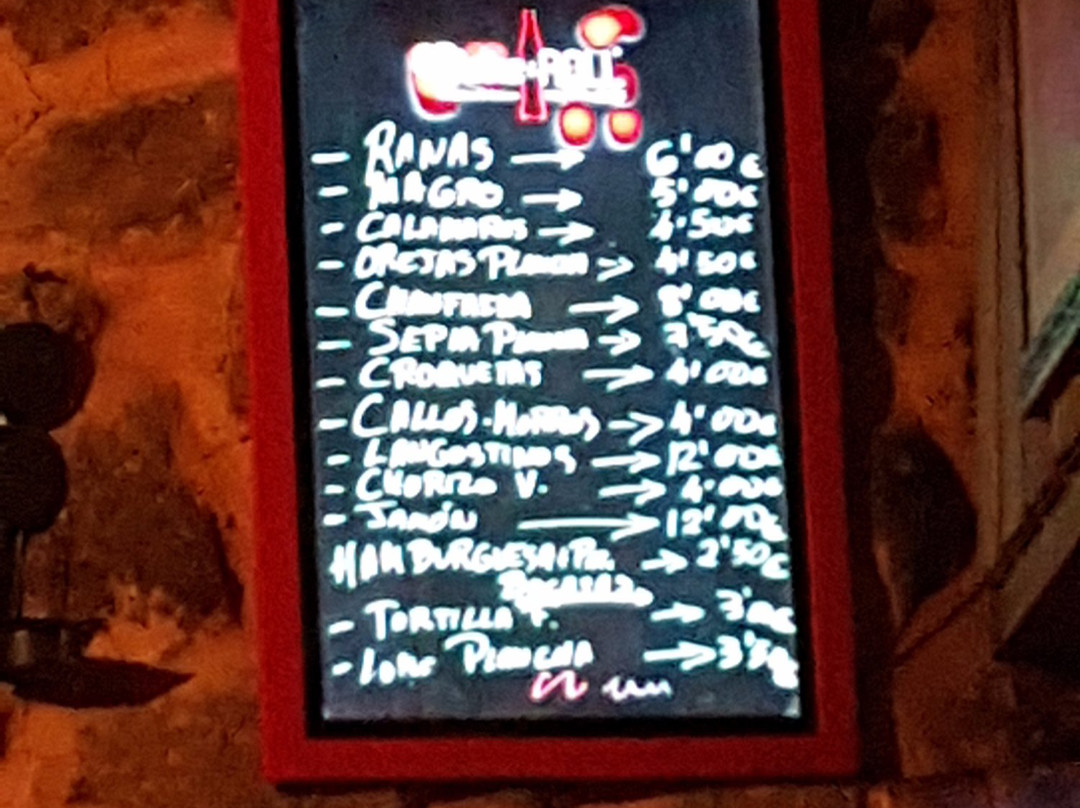 ROLL
- RANAS → 6'00€
- MAGRO → 5'00€
- CALAMARES → 4'50€
- OREJAS PLANCHA → 4'50€
- CHANFAINA → 8'00€
- SEPIA PLANCHA → 7'50€
- CROQUETAS → 4'00€
- CALLOS-MORROS → 4'00€
- LANGOSTINOS → 12'00€
- CHORIZO V. → 4'00€
- JAMÓN → 12'00€
HAMBURGUESA → 2'50€
BOCATAS
- TORTILLA F. → 3'00€
- LOMO PLANCHA → 3'50€